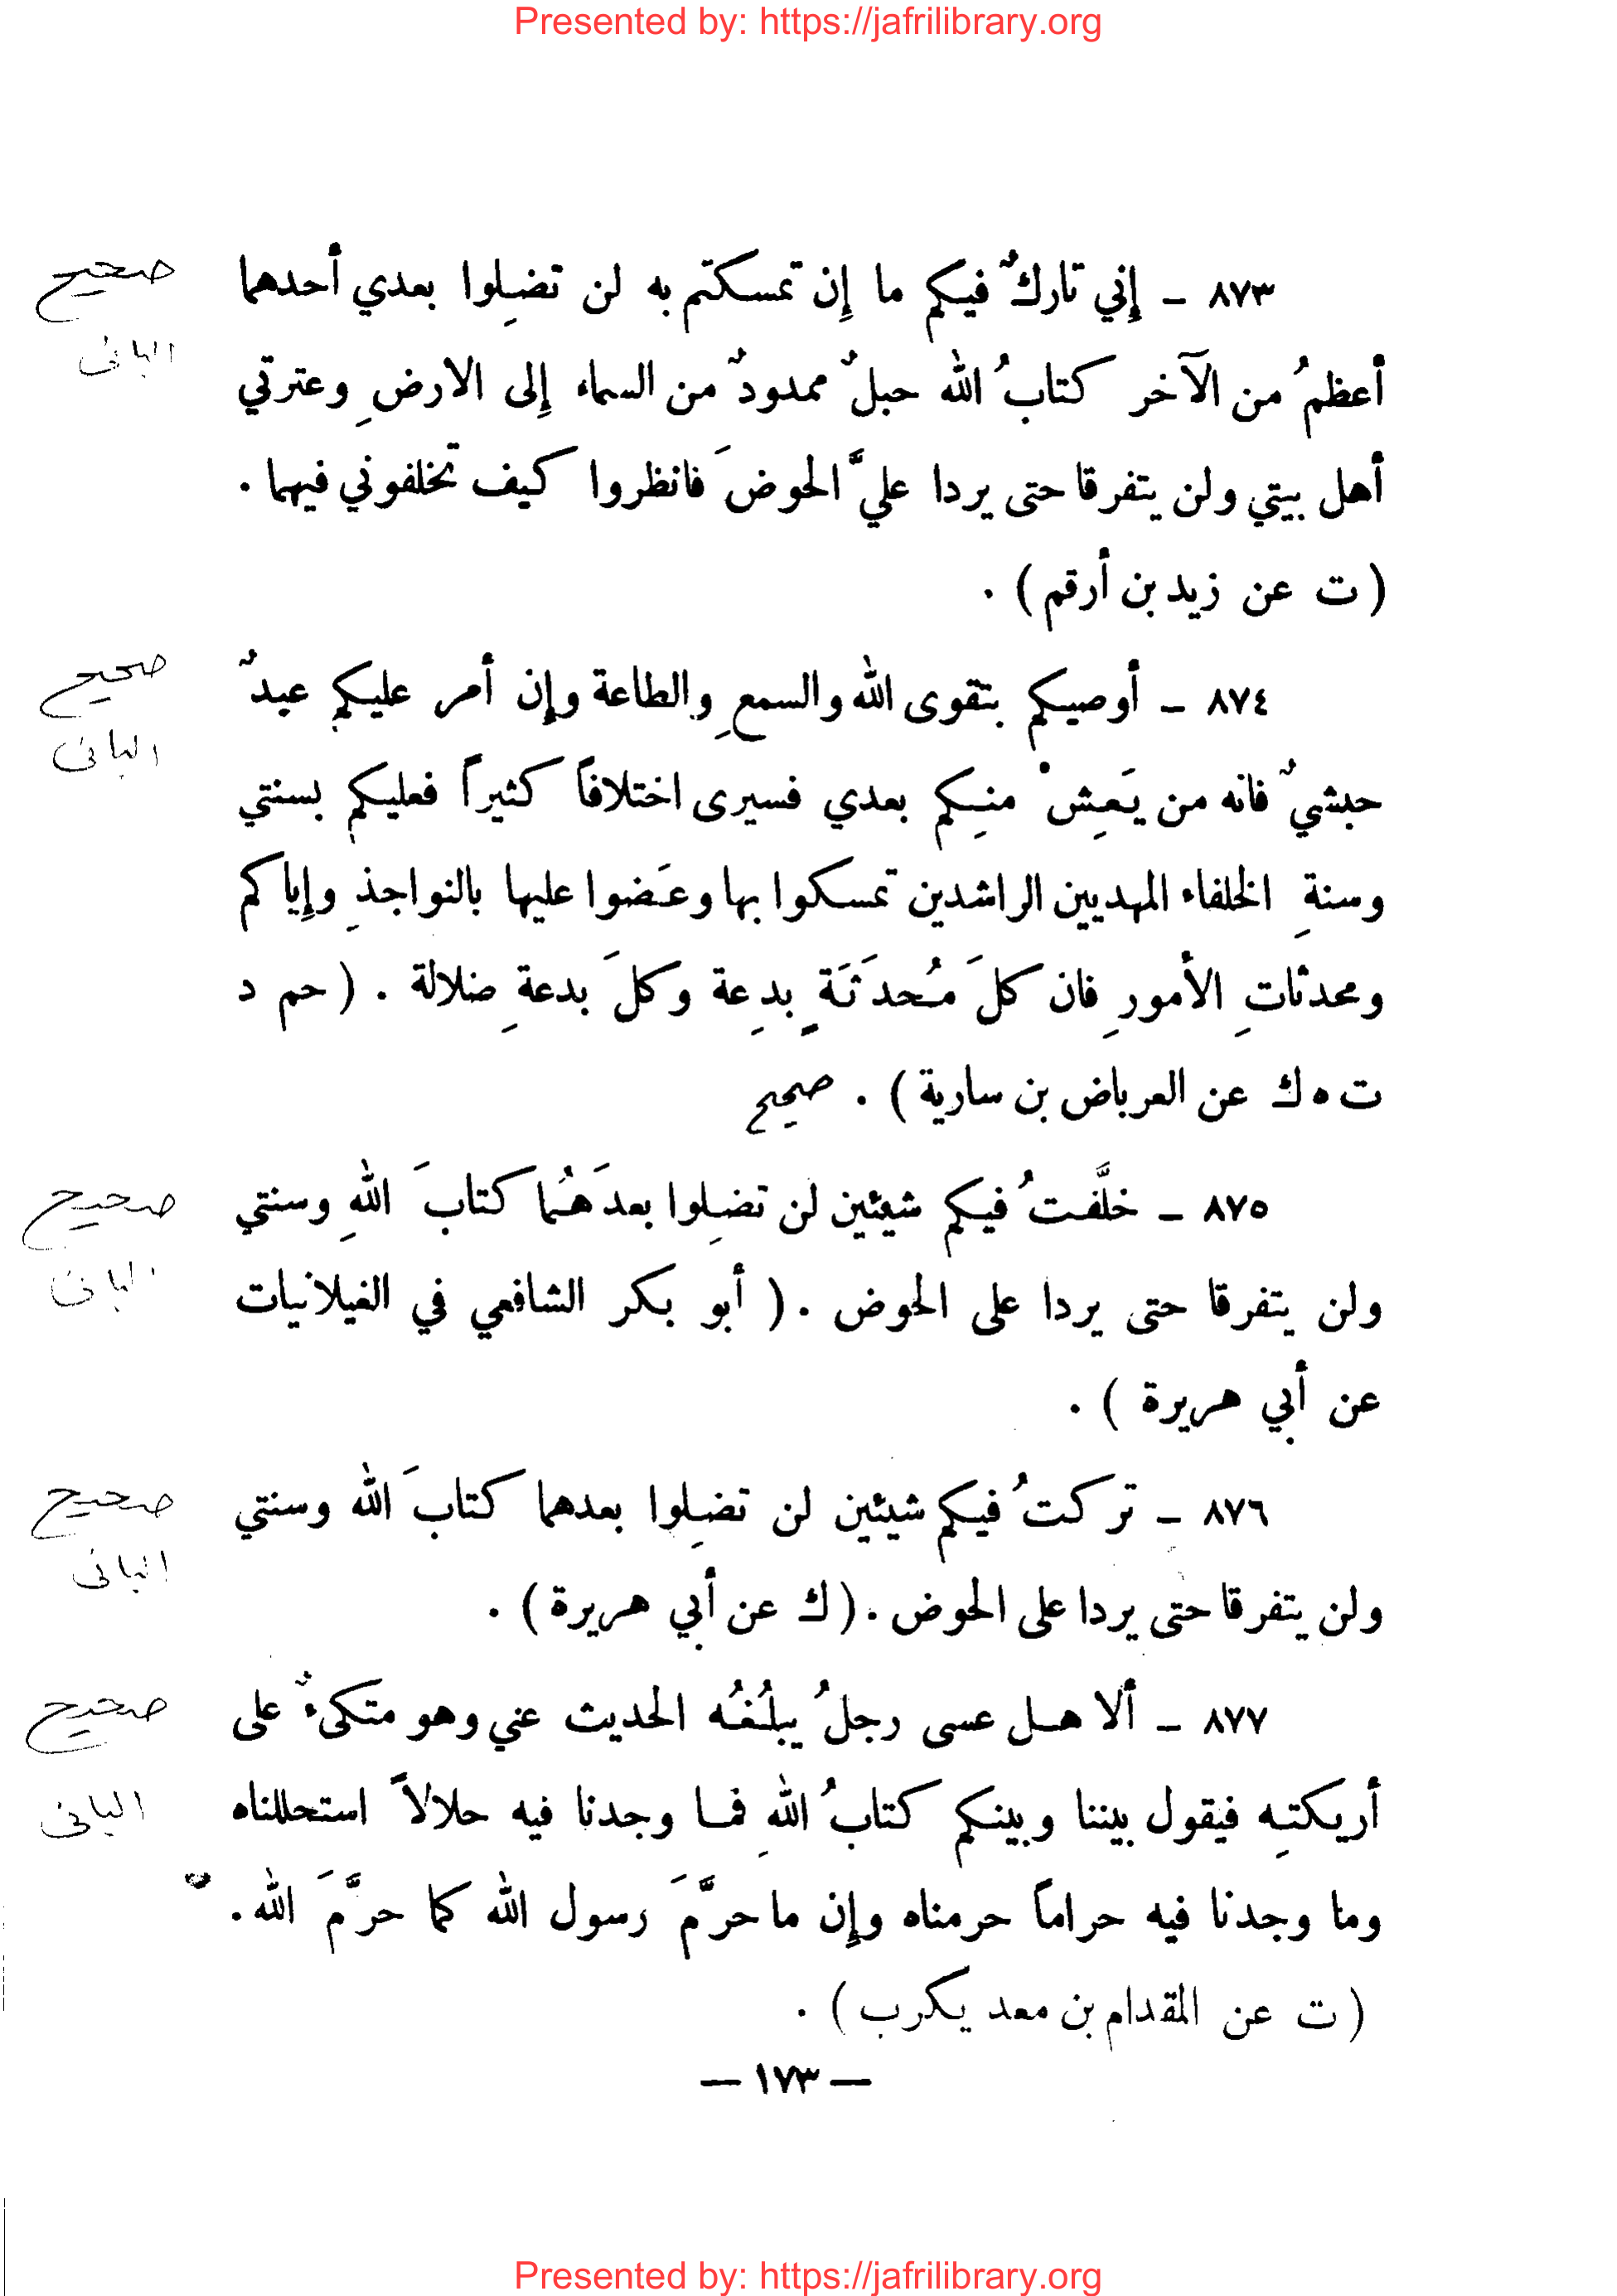 Presented by: https://jafrilibrary.org
٨٧٣ ــ إِني تاركٌ فيكم ما إِن تمسكتم به لن تضِلوا بعدي أحدهما
صحيح
البانى
أعظمُ من الآخر كتابُ الله حبلٌ ممدودٌ من السماء إِلى الارضِ وعترتي
أهل بيتي ولن يتفرقا حتى يردا عليَّ الحوضَ فانظروا كيف تخلفوني فيهما .
( ت عن زيد بن أرقم ) .
٨٧٤ ــ أوصيكم بتقوى الله والسمعِ والطاعة وإِن أمر عليكم عبدٌ
صحيح
البانى
حبشيٌ فانه من يَعِشْ منكم بعدي فسيرى اختلافاً كثيراً فعليكم بسنتي
وسنةِ الخلفاء المهديين الراشدين تمسكوا بها وعَضوا عليها بالنواجذِ وإِياكم
ومحدثاتِ الأمورِ فان كلَ مُحدَثَةٍ بدعِة وكلَ بدعةِ ضلالة . ( حم د
ت ه ك عن العرباض بن سارية ) . صحيح
٨٧٥ ــ خلَّفتُ فيكم شيئين لن تضِلوا بعدَهُما كتابَ اللهِ وسنتي
صحيح
البانى
ولن يتفرقا حتى يردا على الحوض . ( أبو بكر الشافعي في الغيلانيات
عن أبي هريرة ) .
٨٧٦ ــ تركتُ فيكم شيئين لن تضِلوا بعدهما كتابَ الله وسنتي
صحيح
البانى
ولن يتفرقا حتى يردا على الحوض . ( ك عن أبي هريرة ) .
٨٧٧ ــ ألا هل عسى رجلُ يبلُغُه الحديث عني وهو متكىءٌ على
صحيح
البانى
أريكتهِ فيقول بيننا وبينكم كتابُ اللهِ فما وجدنا فيه حلالاً استحللناه
وما وجدنا فيه حراماً حرمناه وإِن ما حرَّمَ رسول الله كما حرَّمَ الله .
( ت عن المقدام بن معد يكرب ) .
— ١٧٣ —
Presented by: https://jafrilibrary.org